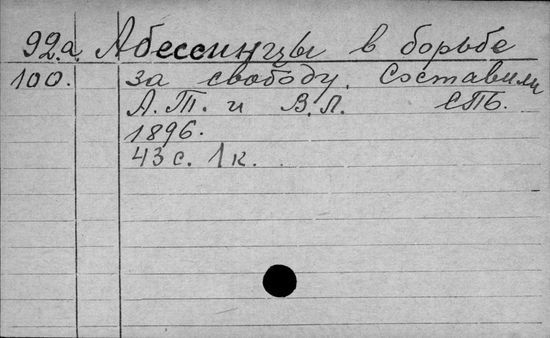 92.а. Абессинцы в борьбе
100. за свободу. Составили
А. Т. и В. Л. СПб.
1896.
43 с. 1 к.